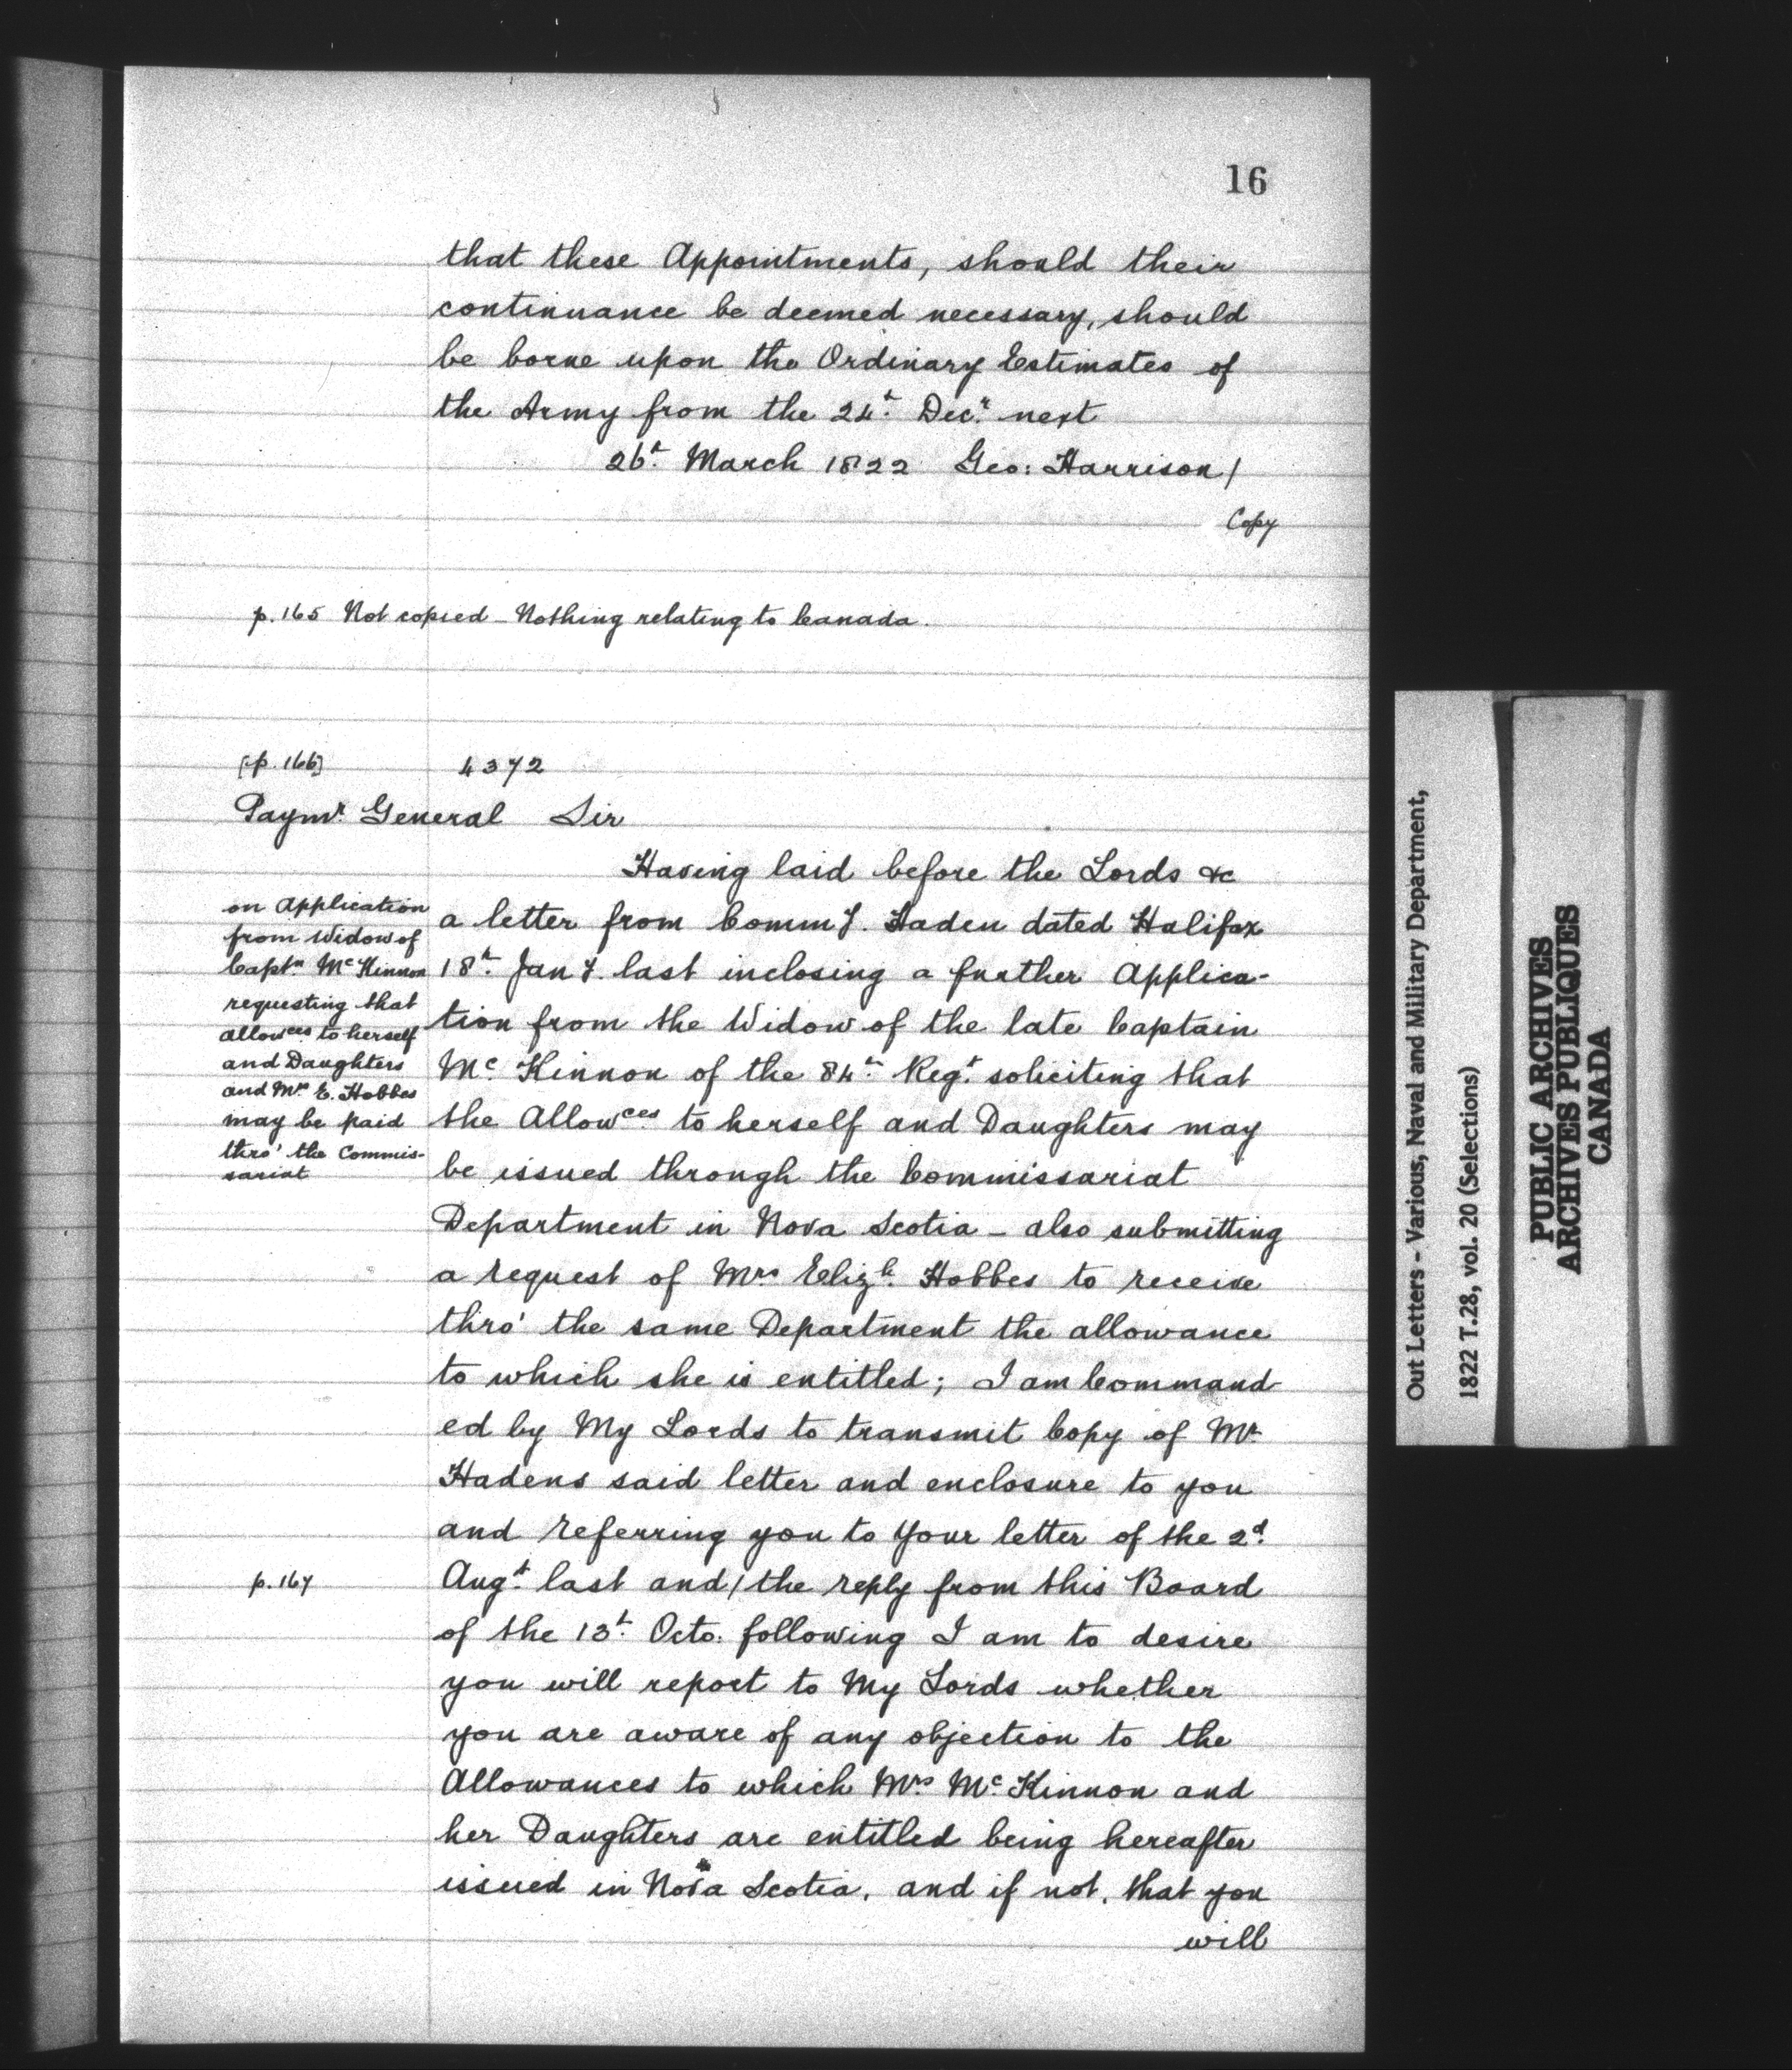 16
that these Appointments, should their
continuance be deemed necessary, should
be borne upon the Ordinary Estimates of
the Army from the 24th Decr next
26th March 1822 Geo: Harrison /
Copy
p. 165 Not copied - Nothing relating to Canada.
[p. 166] 4372
Paymr General Sir
Having laid before the Lords &c
a letter from Commy. Haden dated Halifax
18th Jany. last inclosing a further Applica-
tion from the Widow of the late Captain
Mc Kinnon of the 84th Regt soliciting that
the Allowces to herself and Daughters may
be issued through the Commissariat
Department in Nova Scotia - also submitting
a request of Mrs Elizh. Hobbes to receive
thro' the same Department the allowance
to which she is entitled; I am Command-
ed by My Lords to transmit Copy of Mr
Hadens said letter and enclosure to you
and referring you to your letter of the 2d
Augt last and / the reply from this Board
of the 13th Octo. following I am to desire
you will report to My Lords whether
you are aware of any objection to the
Allowances to which Mrs Mc Kinnon and
her Daughters are entitled being hereafter
issued in Nova Scotia, and if not, that you
will
on Application
from Widow of
Captn Mc Kinnon
requesting that
allowces to herself
and Daughters
and Mrs E. Hobbes
may be paid
thro' the Commis-
sariat
p. 167
Out Letters - Various, Naval and Military Department,
1822 T.28, vol. 20 (Selections)
PUBLIC ARCHIVES
ARCHIVES PUBLIQUES
CANADA